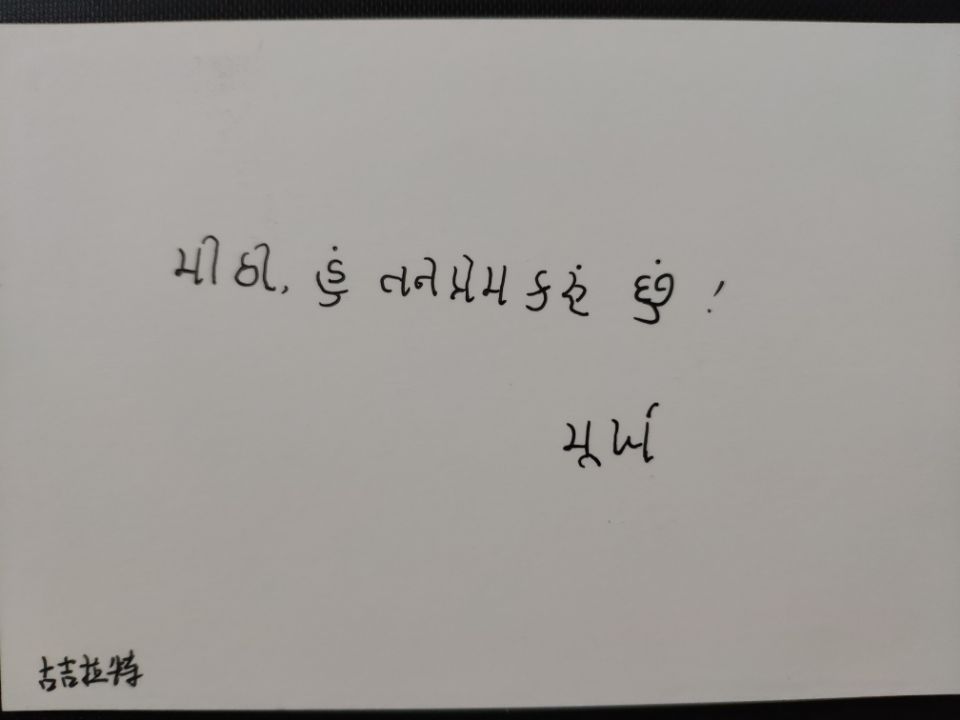 મીઠી, હું તને પ્રેમ કરું છું!
મૂર્ખ
古吉拉特